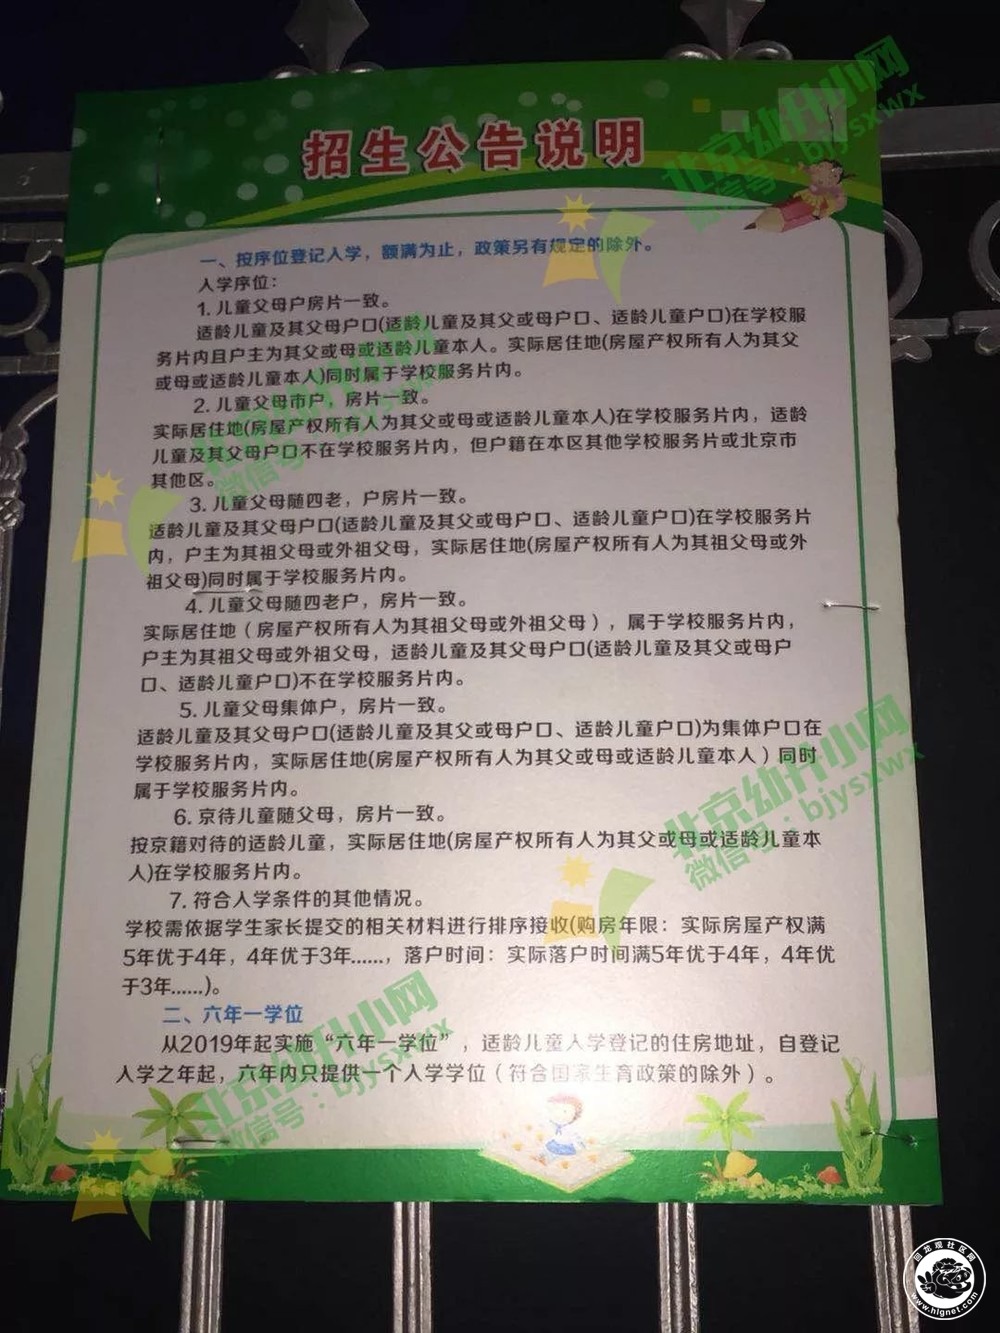 招生公告说明
一、按序位登记入学，额满为止，政策另有规定的除外。
入学序位：
1. 儿童父母户房片一致。
适龄儿童及其父母户口(适龄儿童及其父或母户口、适龄儿童户口)在学校服
务片内且户主为其父或母或适龄儿童本人。实际居住地(房屋产权所有人为其父
或母或适龄儿童本人)同时属于学校服务片内。
2. 儿童父母市户，房片一致。
实际居住地(房屋产权所有人为其父或母或适龄儿童本人)在学校服务片内，适龄
儿童及其父母户口不在学校服务片内，但户籍在本区其他学校服务片或北京市
其他区。
3. 儿童父母随四老，户房片一致。
适龄儿童及其父母户口(适龄儿童及其父或母户口、适龄儿童户口)在学校服务片
内，户主为其祖父母或外祖父母，实际居住地(房屋产权所有人为其祖父母或外
祖父母)同时属于学校服务片内。
4. 儿童父母随四老户，房片一致。
实际居住地（房屋产权所有人为其祖父母或外祖父母），属于学校服务片内，
户主为其祖父母或外祖父母，适龄儿童及其父母户口(适龄儿童及其父或母户
口、适龄儿童户口)不在学校服务片内。
5. 儿童父母集体户，房片一致。
适龄儿童及其父母户口(适龄儿童及其父或母户口、适龄儿童户口)为集体户口在
学校服务片内，实际居住地(房屋产权所有人为其父或母或适龄儿童本人）同时
属于学校服务片内。
6. 京待儿童随父母，房片一致。
按京籍对待的适龄儿童，实际居住地(房屋产权所有人为其父或母或适龄儿童本
人)在学校服务片内。
7. 符合入学条件的其他情况。
学校需依据学生家长提交的相关材料进行排序接收(购房年限：实际房屋产权满
5年优于4年，4年优于3年......，落户时间：实际落户时间满5年优于4年，4年优
于3年......)。
二、六年一学位
从2019年起实施“六年一学位”，适龄儿童入学登记的住房地址，自登记
入学之年起，六年内只提供一个入学学位（符合国家生育政策的除外）。
北京幼升小网
微信号：bjysxwx
北京幼升小网
微信号：bjysxwx
北京幼升小网
微信号：bjysxwx
北京幼升小网
微信号：bjysxwx
回龙观社区网
www.hlgnet.com